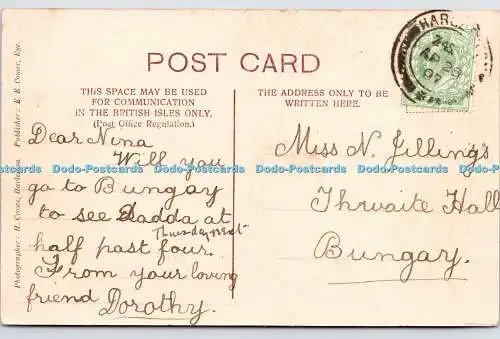 POST CARD
THIS SPACE MAY BE USED
FOR COMMUNICATION
IN THE BRITISH ISLES ONLY.
(Post Office Regulation.)
THE ADDRESS ONLY TO BE
WRITTEN HERE.
Dear Nina
Will you
go to Bungay
to see Dadda at
half past four.
Thursday next
From your loving
friend Dorothy.
Miss N. Jillings
Thwaite Hall
Bungay.
Photographer: H. Coner, Harleston. Publisher: E. E. Coner, Eye.
AP 29
07
Dodo-Postcards Dodo-Postcards Dodo-Postcards Dodo-Postcards Dodo-Postcards